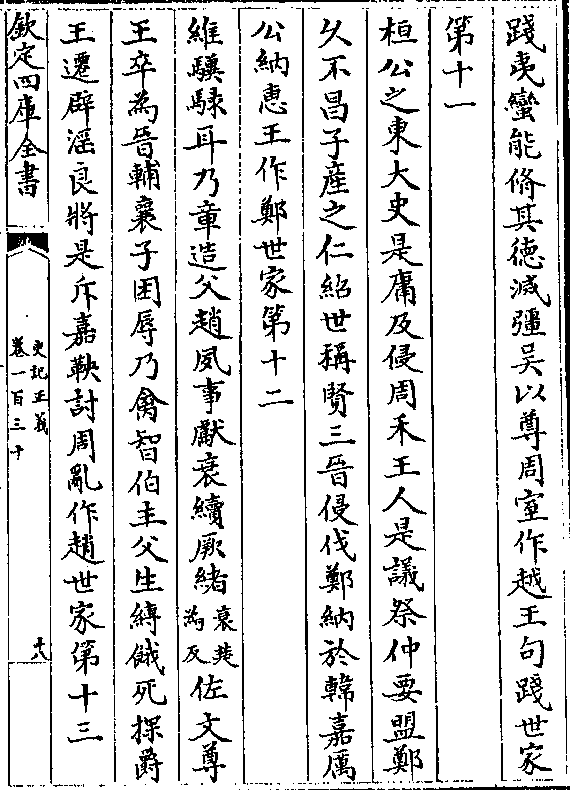 踐夷蠻能脩其徳滅彊吳以尊周室作越王句踐世家
第十一
桓公之東大史是庸及侵周禾王人是議祭仲要盟鄭
久不昌子產之仁紹世稱賢三晉侵伐鄭納於韓嘉厲
公納惠王作鄭世家第十二
維驥騄耳乃章造父趙夙事獻衰續厥緒衰楚為反佐文尊
王卒為晉輔襄子困辱乃禽智伯主父生縛餓死探爵
王遷辟滛良將是斥嘉鞅討周亂作趙世家第十三
欽定四庫全書
史記正義
卷一百三十
十八